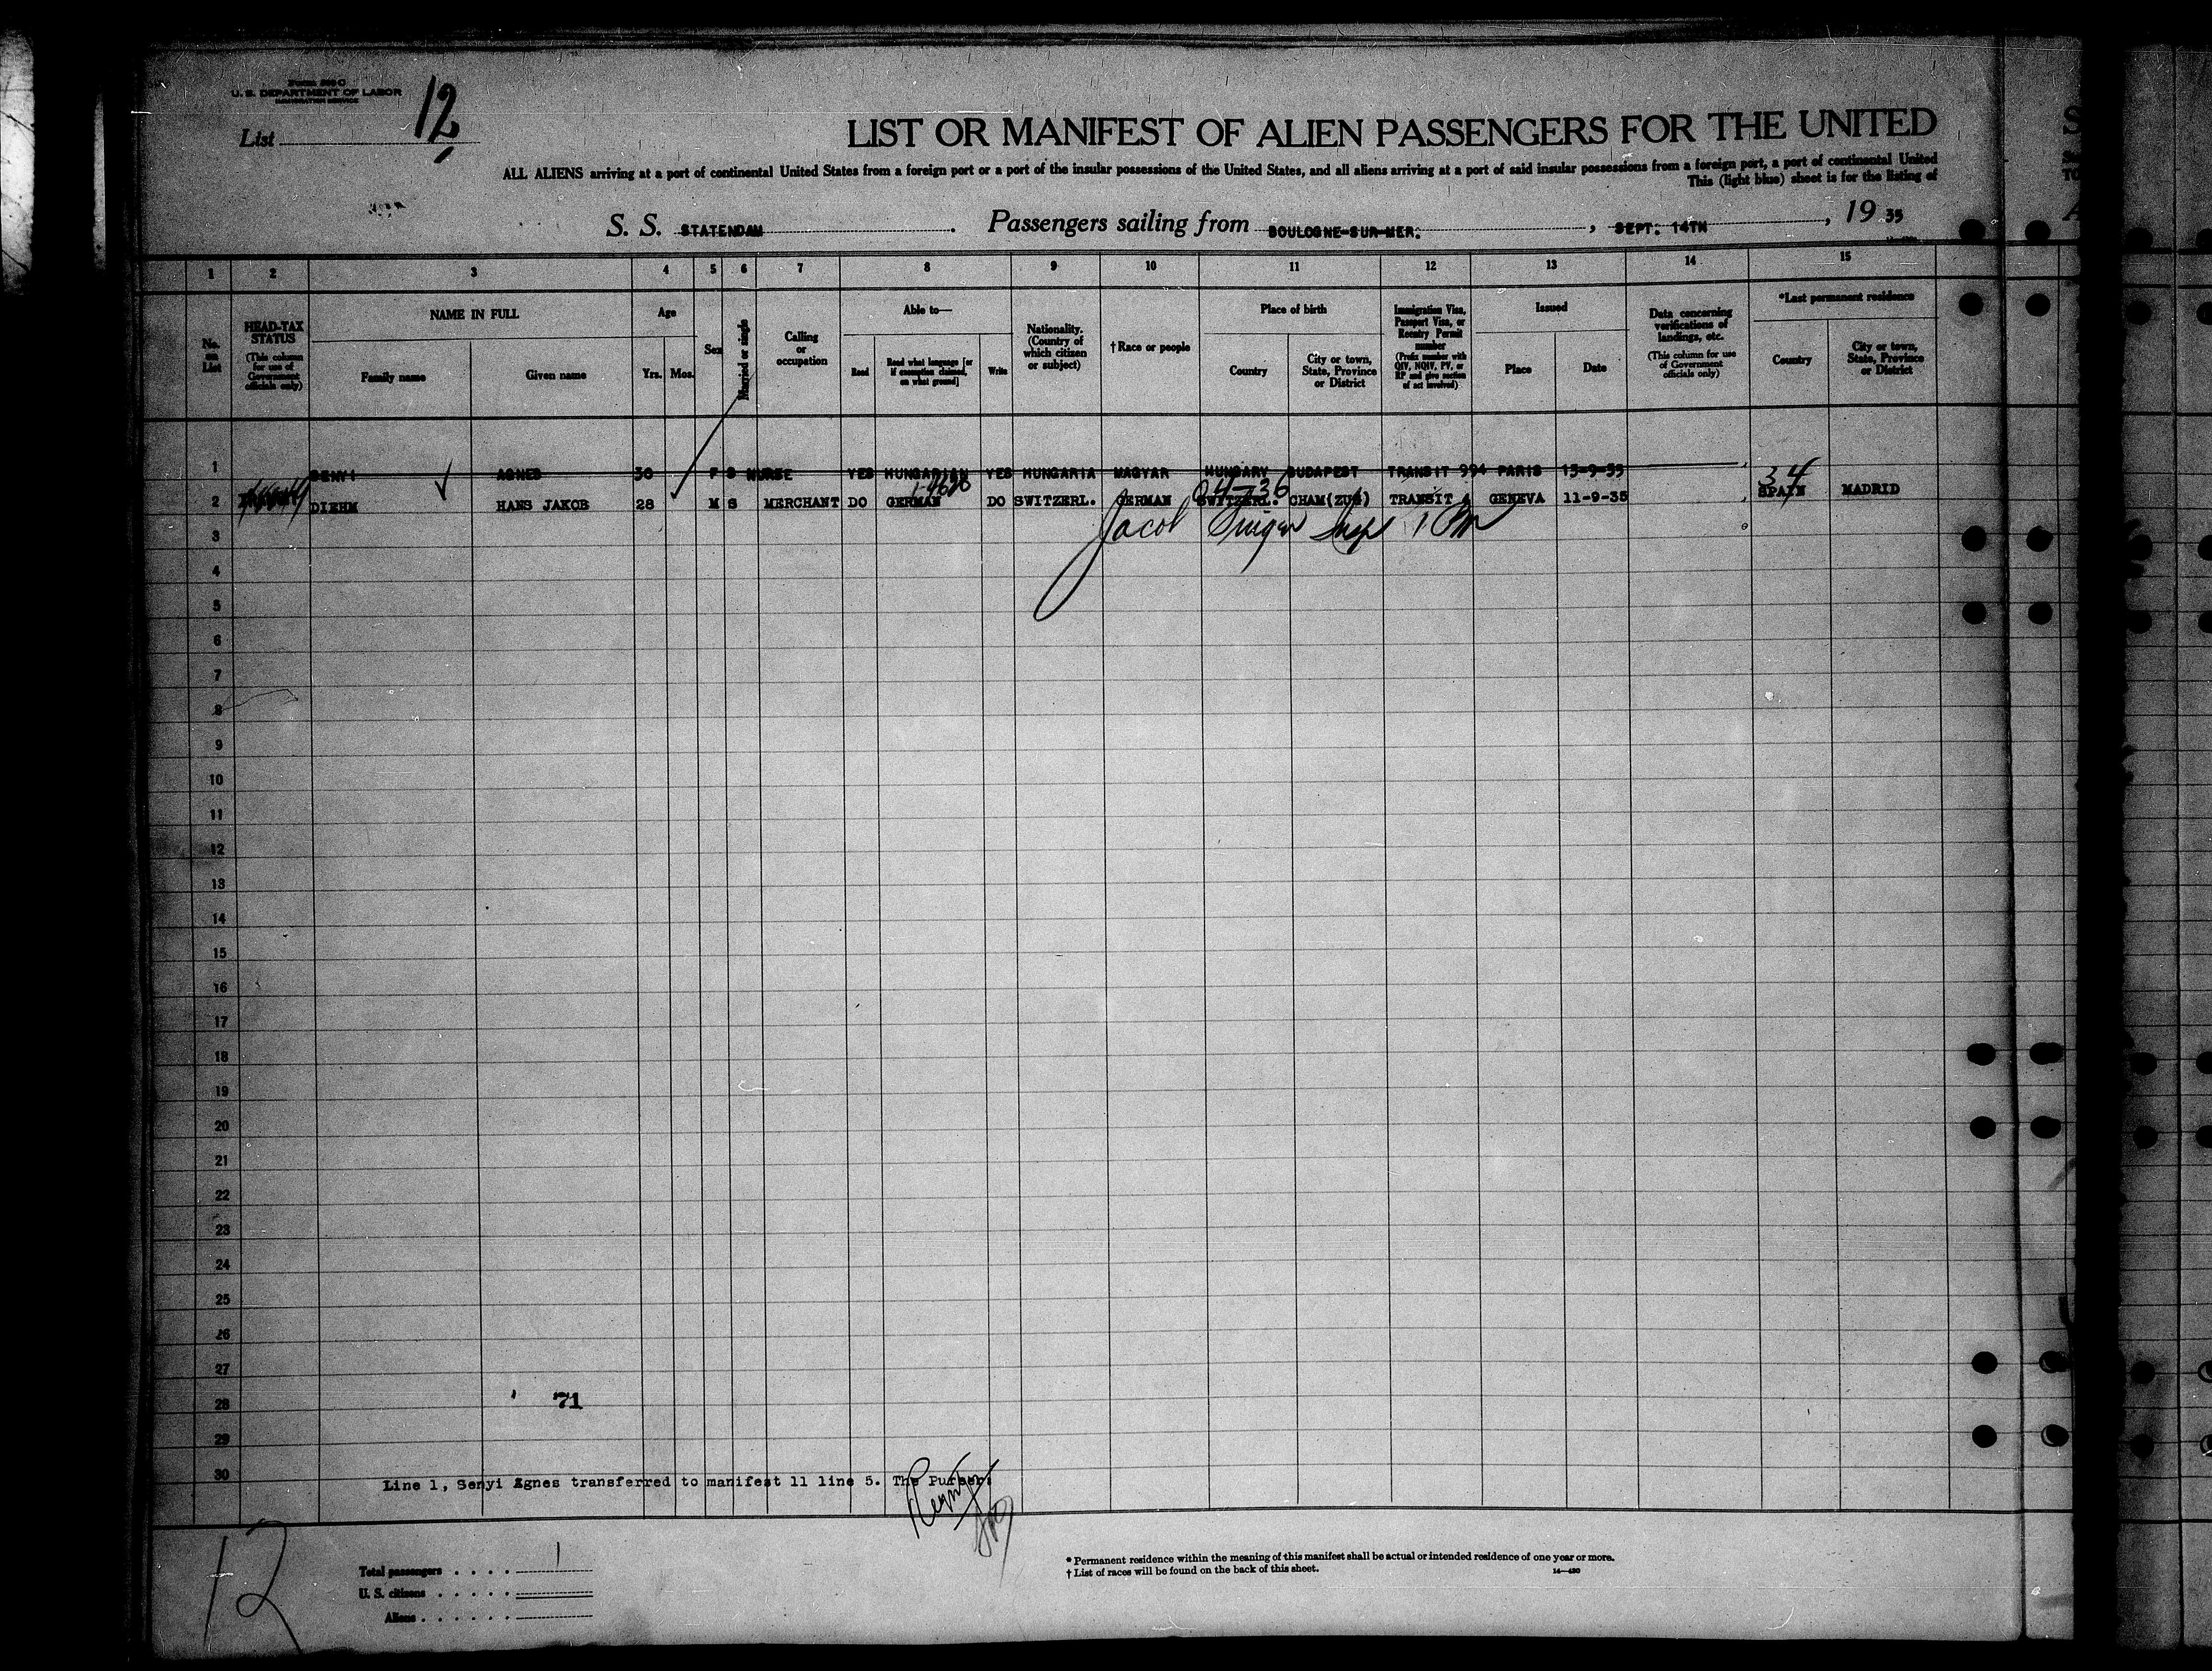 Form 500 C
U. S. DEPARTMENT OF LABOR
IMMIGRATION SERVICE
List 12
LIST OR MANIFEST OF ALIEN PASSENGERS FOR THE UNITED
ALL ALIENS arriving at a port of continental United States from a foreign port or a port of the insular possessions of the United States, and all aliens arriving at a port of said insular possessions from a foreign port, a port of continental United
This (light blue) sheet is for the listing of
S. S. STATENDAM. Passengers sailing from BOULOGNE-SUR-MER. , SEPT. 14TH , 19 35
1 2 3 4 5 6 7 8 9 10 11 12 13 14 15
No. on List
HEAD-TAX STATUS (This column for use of Government officials only)
NAME IN FULL
Family name
Given name
Age
Yrs. Mos.
Sex
Married or single
Calling or occupation
Able to—
Read
Read what language [or if exemption claimed, on what ground]
Write
Nationality. (Country of which citizen or subject)
†Race or people
Place of birth
Country
City or town, State, Province or District
Immigration Visa, Passport Visa, or Reentry Permit number (Prefix number with QIV, NQIV, PV, or RP and give section of act involved)
Issued
Place
Date
Data concerning verifications of landings, etc. (This column for use of Government officials only)
*Last permanent residence
Country
City or town, State, Province or District
1 SENYI AGNES 30 F S NURSE YES HUNGARIAN YES HUNGARIA MAGYAR HUNGARY BUDAPEST TRANSIT 994 PARIS 13-9-35
34
2 DIEHM HANS JAKOB 28 M S MERCHANT DO GERMAN DO SWITZERL. GERMAN SWITZERL. CHAM(ZUG) TRANSIT 4 GENEVA 11-9-35 SPAIN MADRID
3 Jacob Insp
4
5
6
7
8
9
10
11
12
13
14
15
16
17
18
19
20
21
22
23
24
25
26
27
28 71
29
30 Line 1, Senyi Agnes transferred to manifest 11 line 5. The Purser.
12
Total passengers . . . . 1
U. S. citizens . . . . .
Aliens . . . . . .
* Permanent residence within the meaning of this manifest shall be actual or intended residence of one year or more.
† List of races will be found on the back of this sheet. 14—430